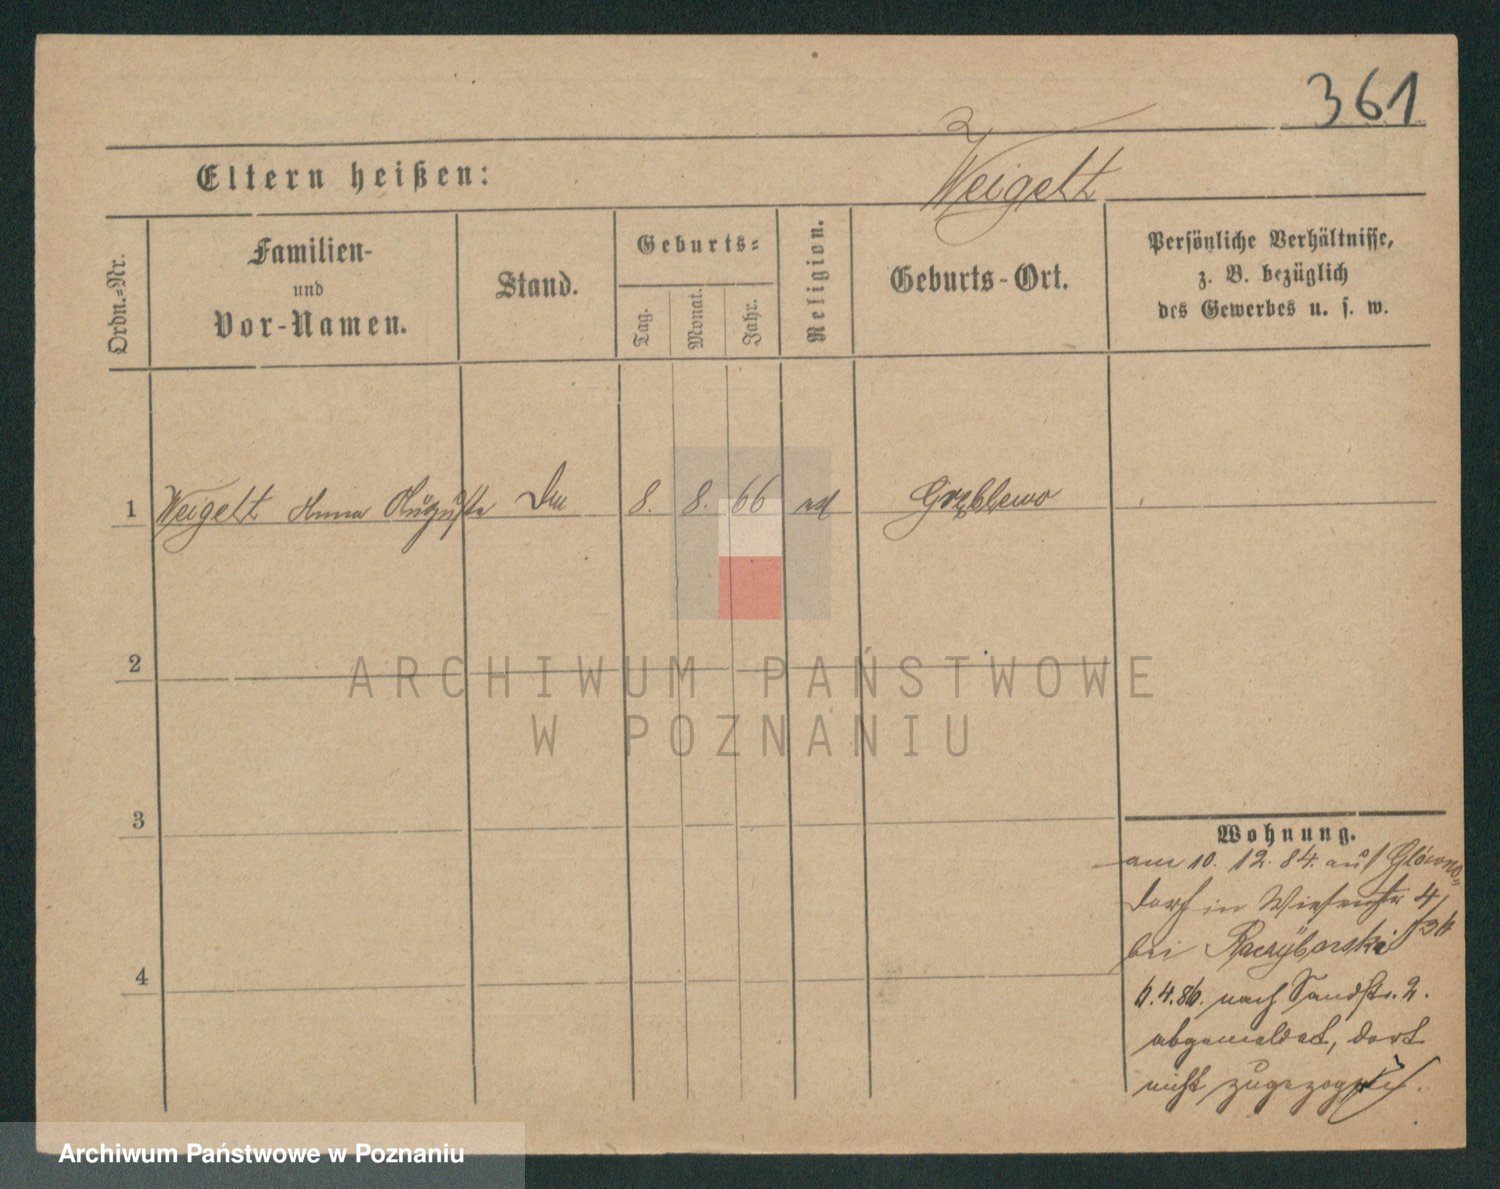 361
Eltern heißen:
Weigelt
Ordn.=Nr.
Familien-
und
Vor-Namen.
Stand.
Geburts=
Tag.
Monat.
Jahr.
Religion.
Geburts-Ort.
Persönliche Verhältnisse,
z. B. bezüglich
des Gewerbes u. s. w.
1 Weigelt Anna Auguste 8. 8. 66
2
3
4
ARCHIWUM PAŃSTWOWE
W POZNANIU
Wohnung.
am 10. 12. 84. auf Glowno=
dorf in Wiesenstr 4
bei
6.4.86. nach Sandstr. 2.
abgemeldet, dort
nicht zugezogen.
Archiwum Państwowe w Poznaniu